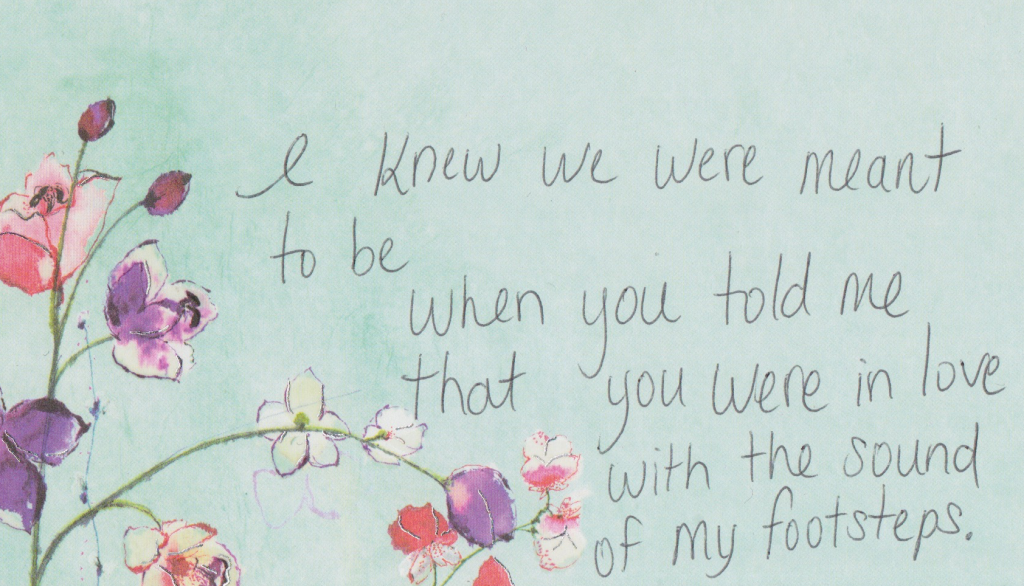 I knew we were meant
to be
when you told me
that you were in love
with the sound
of my footsteps.